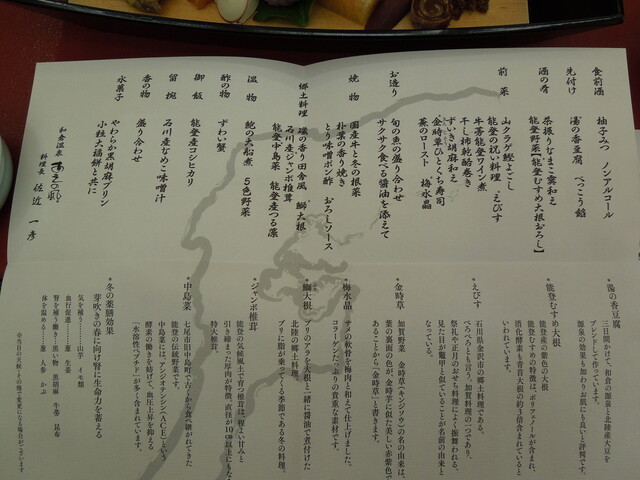 食前酒 柚子みつ ノンアルコール
先付け 湯の香豆腐 べっこう餡
酒の肴 茶振りなまこ霙和え
能登野菜【能登むすめ大根おろし】
前菜 山クラゲ鰹よごし
能登の祝い料理 えびす
牛蒡能登ワイン煮
干し柿乾酪巻き
ずいき胡麻和え
金時草ひとくち寿司
茶のロースト 梅水晶
お造り 旬の魚の盛り合わせ
サクサク食べる醤油を添えて
焼物 国産牛と冬の根菜
朴葉の香り焼き
とり味噌ポン酢 おろしソース
郷土料理 磯の香り田舎風 鰤大根
石川産ジャンボ椎茸
能登中島菜 能登産つる藻
温物 鮑の大船煮 5色野菜
酢の物 ずわい蟹
御飯 能登産コシヒカリ
留椀 石川産なめこ味噌汁
香の物 盛り合わせ
水菓子 やわらか黒胡麻プリン
小粒大福餅と共に
和倉温泉
料理長 佐近 一彦
・湯の香豆腐
三日間かけて、和倉の源泉と北陸産大豆を
ブレンドして作っています。
源泉の効果も加わりお肌にも良いと評判です。
・能登むすめ大根
能登産の紫色の大根
能登むすめの特徴は、ポリフェノールが含まれ、
消化酵素も青首大根の約3倍含まれていると
いわれています。
・えびす
石川県金沢市の郷土料理である。
べろべろとも言う。加賀料理の一つであり、
祭礼や正月のおせち料理によく振舞われる。
見た目が鼈甲と似ていることが名前の由来と
なっている。
・金時草
加賀野菜 金時草(キンジソウ)の名の由来は、
葉の裏面の色が、金時芋に似た美しい赤紫色で
あることから「金時草」と書きます。
・梅水晶
サメの軟骨を梅肉と和えて仕上げました。
コラーゲンたっぷりの貴重な素材です。
・鰤大根
ブリのアラを大根と一緒に醤油で煮付けた
北陸の郷土料理。
ブリに脂が乗ってくる季節である冬の料理。
・ジャンボ椎茸
能登の気候風土で育つ椎茸は、程よい甘みと
引き締まった厚肉が特徴。直径が10㎝以上にもなる
特大椎茸。
・中島菜
七尾市旧中島町で古くから食べ継がれてきた
能登の伝統野菜です。
中島菜には、アンジオテンシン(ACE)という
酵素の働きを妨げて、血圧上昇を抑える
「水溶性ペプチド」が多く含まれています。
・冬の薬膳効果
芽吹きの春に向け腎に生命力を蓄える
気を補う……山芋 イモ類
血行促進……蓮 生姜
腎を補う働き……黒い物 黒胡麻 牛蒡 昆布
体を温める……人参 かぶ
※当日の天候とその他で変更になる場合がございます